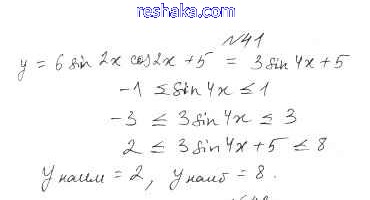 reshaka.com
№41
y = 6 sin 2x cos 2x + 5 = 3 sin 4x + 5
-1 ≤ sin 4x ≤ 1
-3 ≤ 3 sin 4x ≤ 3
2 ≤ 3 sin 4x + 5 ≤ 8
y наим = 2, y наиб = 8.